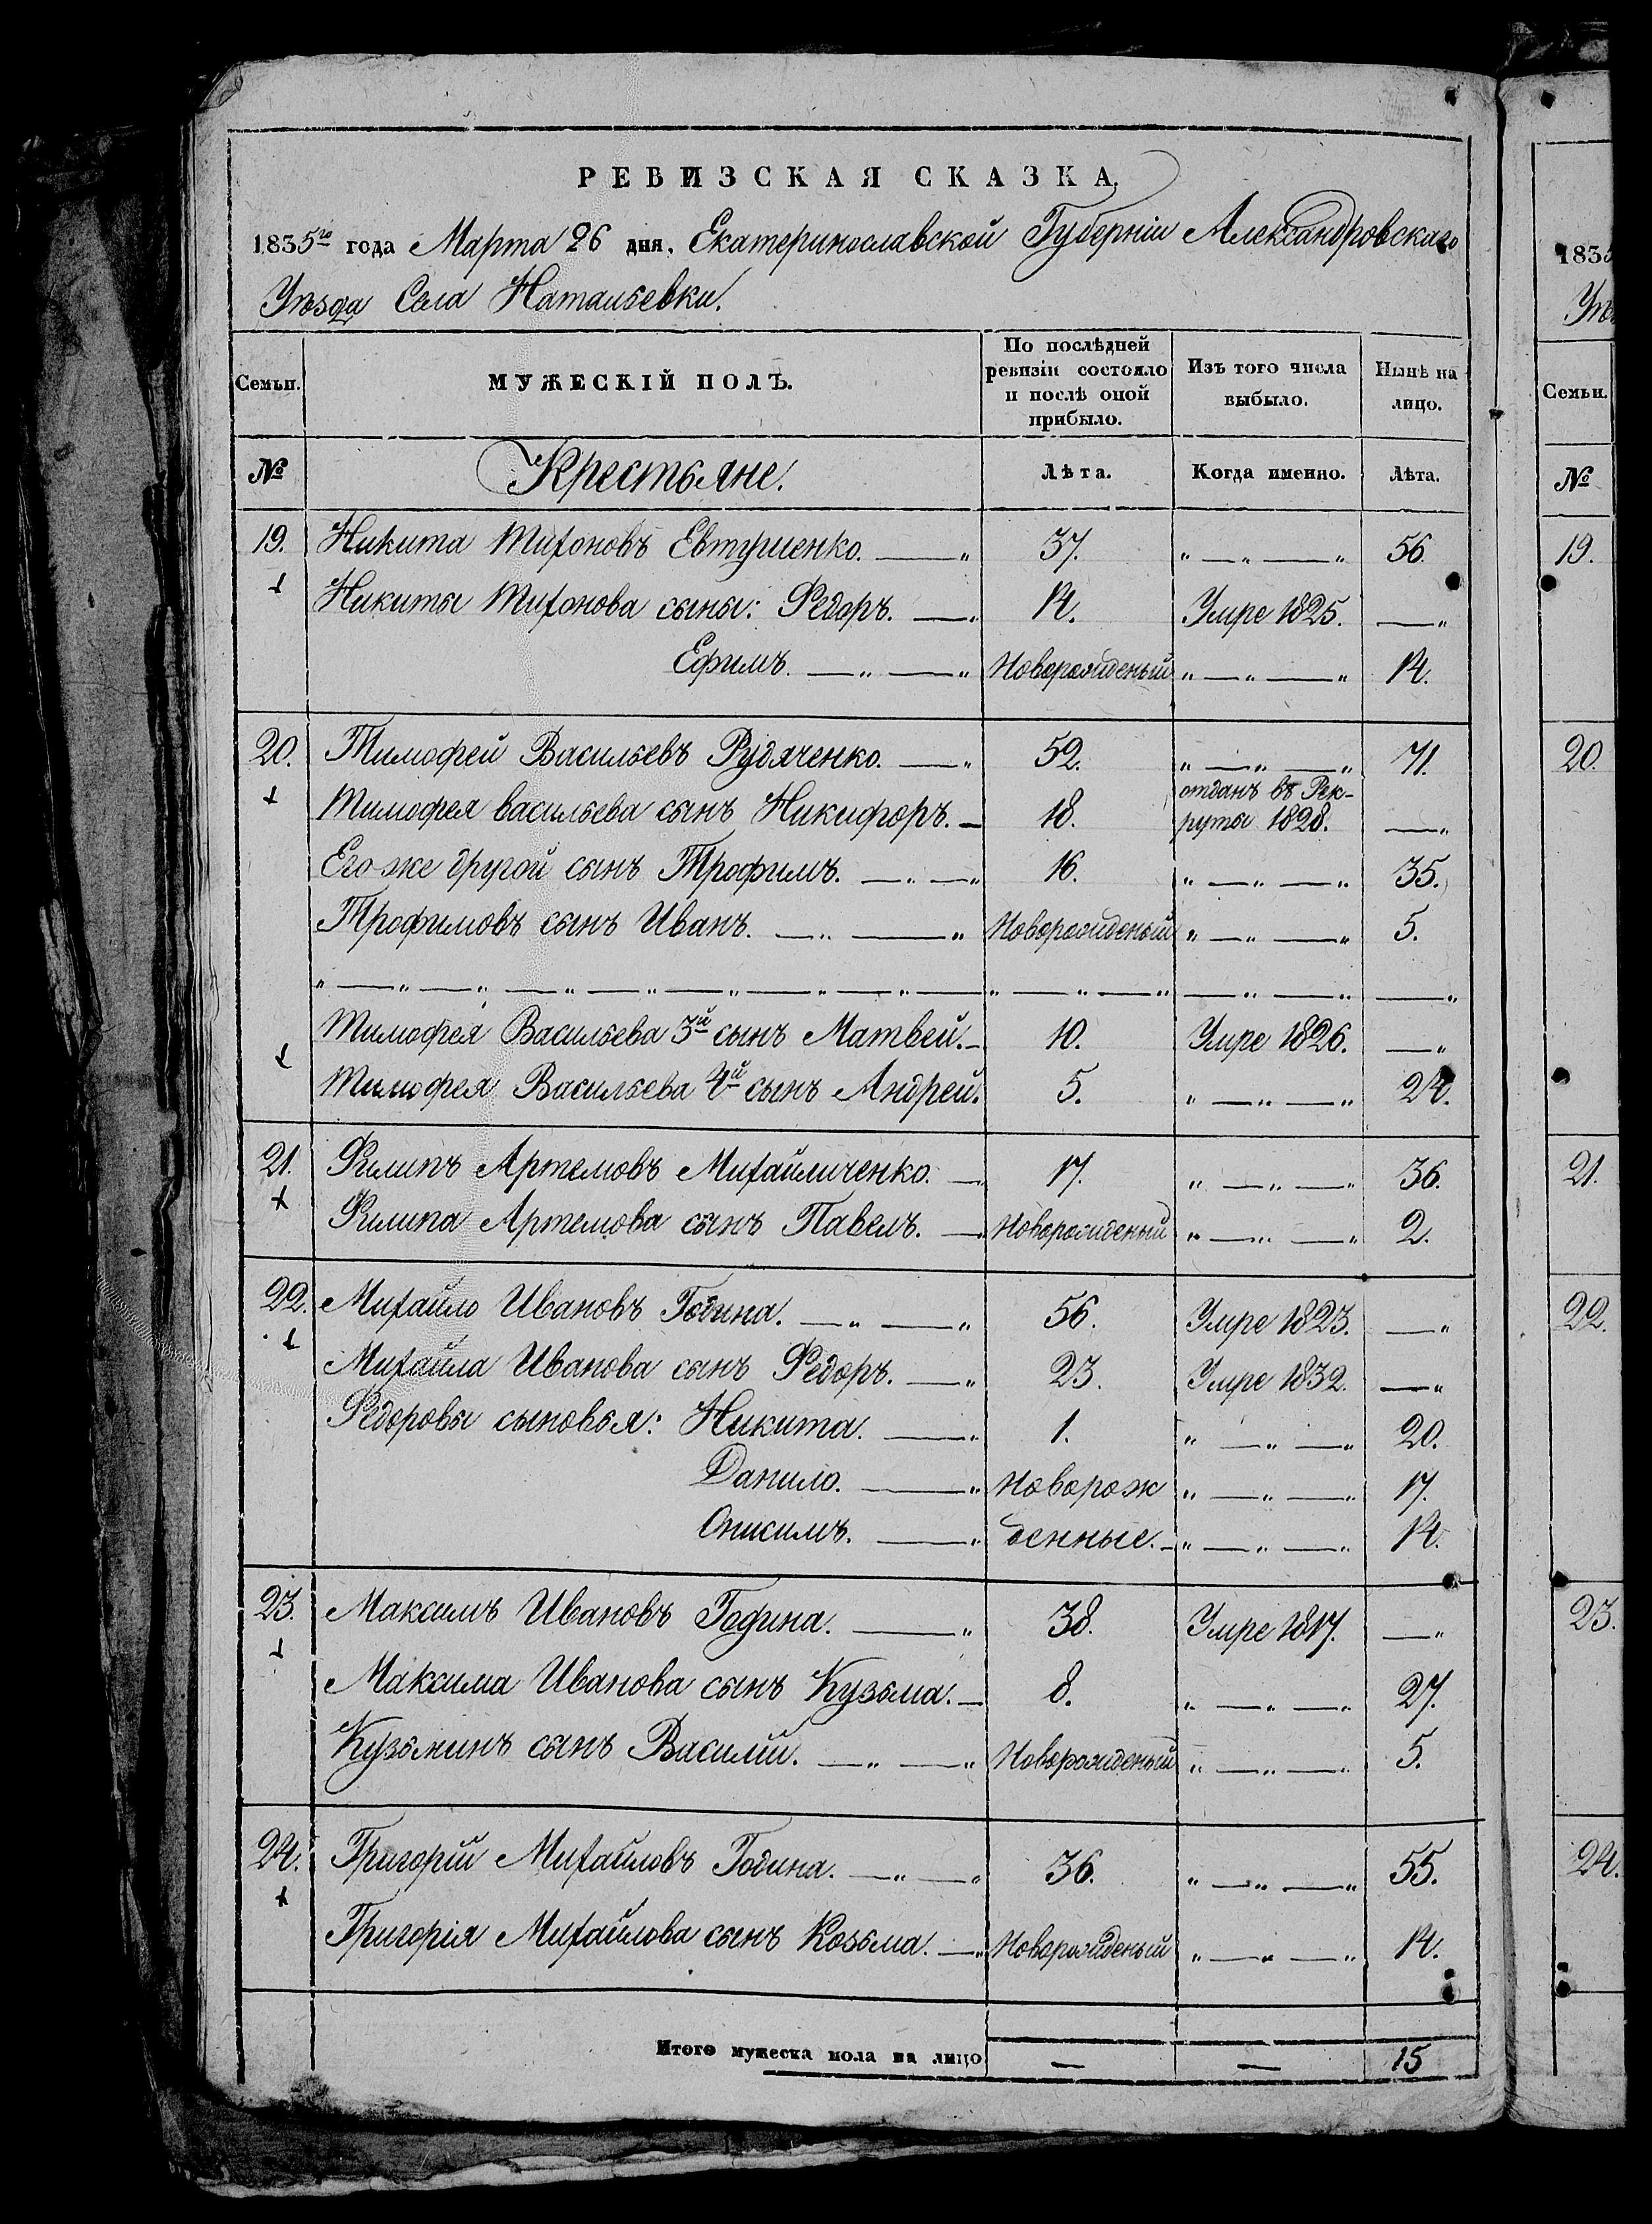 РЕВИЗСКАЯ СКАЗКА,
1835го года Марта 26 дня, Екатеринославской Губернiи Александровскаго
Уѣзда Села Натальевки.
Семьи. МУЖЕСКIЙ ПОЛЪ. По послѣдней ревизiи состояло и послѣ оной прибыло. Изъ того числа выбыло. Нынѣ на лицо.
№ Крестьяне. Лѣта. Когда именно. Лѣта.
19. Никита Тихоновъ Евтушенко. — „ 37. „ — „ — „ 56.
Никиты Тихонова сыны: Федоръ. — „ 14. Умре 1825. — „
Ефимъ. — „ — „ Новорожденый „ — „ — „ 14.
20. Тимофей Васильевъ Рудяченко. — „ 52. „ — „ — „ 71.
Тимофея васильева сынъ Никифоръ. — 18. отданъ въ Рекруты 1828. — „
Его же другой сынъ Трофимъ. — „ — „ 16. „ — „ — „ 35.
Трофимовъ сынъ Иванъ. — „ — „ Новорожденый „ — „ — „ 5.
„ — „ — „ — „ — „ — „ — „ — „ — „ — „ — „ — „ — „ — „
Тимофея Васильева 3й сынъ Матвей. — 10. Умре 1826. — „
Тимофея Васильева 4й сынъ Андрей. 5. „ — „ — „ 24.
21. Филипъ Артемовъ Михайличенко. — 17. „ — „ — „ 36.
Филипа Артемова сынъ Павелъ. — „ Новорожденый „ — „ — „ 2.
22. Михайло Ивановъ Година. — „ — „ 56. Умре 1823. — „
Михайла Иванова сынъ Федоръ. — „ 23. Умре 1832. — „
Федоровы сыновья: Никита. — „ 1. „ — „ — „ 20.
Данило. — „ новорож „ — „ — „ 17.
Онисимъ. — „ денные. — „ — „ — „ 14.
23. Максимъ Ивановъ Година. — „ 38. Умре 1817. — „
Максима Иванова сынъ Кузьма. — 8. „ — „ — „ 27.
Кузьминъ сынъ Василiй. — „ — „ Новорожденый „ — „ — „ 5.
24. Григорiй Михайловъ Година. — „ — „ 36. „ — „ — „ 55.
Григорiя Михайлова сынъ Козьма. — „ Новорожденый „ — „ — „ 14.
Итого мужеска пола на лицо — — 15
1835
Уѣ
Семьи.
№
19.
20.
21.
22.
23.
24.